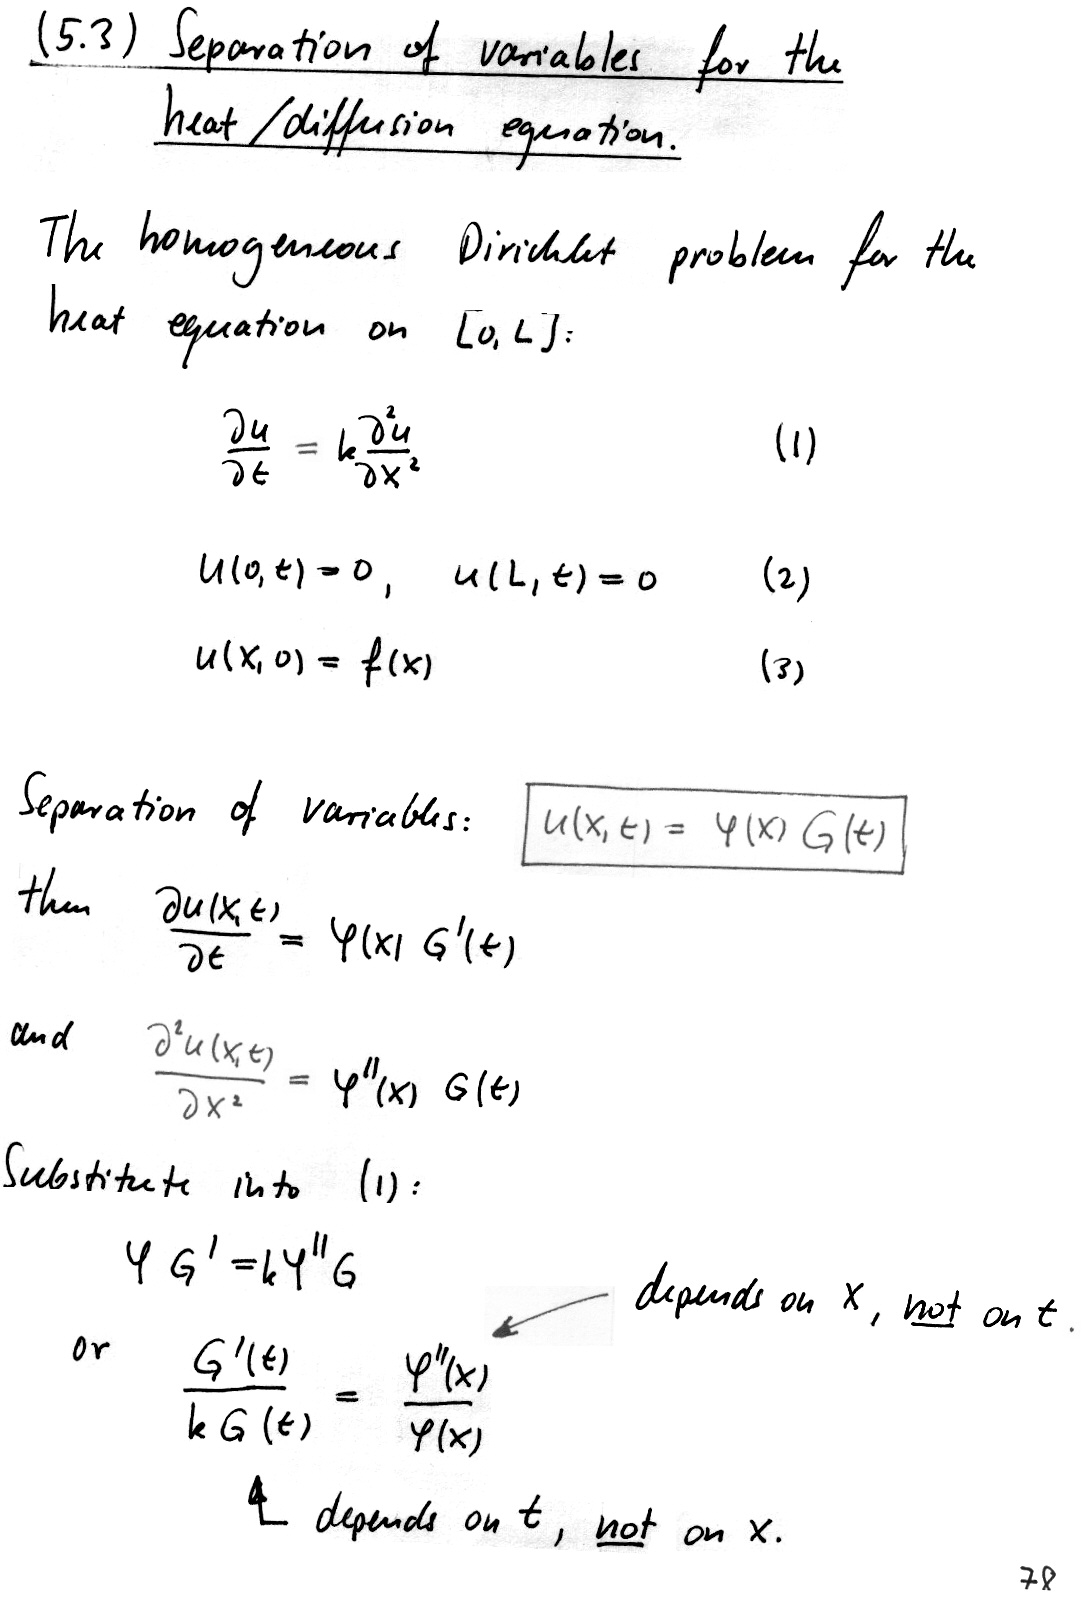 (5.3) Separation of variables for the
heat/diffusion equation.
The homogeneous Dirichlet problem for the
heat equation on [0, L]:
∂u/∂t = k ∂²u/∂x² (1)
u(0, t) = 0, u(L, t) = 0 (2)
u(x, 0) = f(x) (3)
Separation of variables: u(x, t) = φ(x) G(t)
then ∂u(x, t)/∂t = φ(x) G'(t)
and ∂²u(x, t)/∂x² = φ''(x) G(t)
Substitute into (1):
φ G' = kφ''G
depends on x, not on t.
or G'(t)/kG(t) = φ''(x)/φ(x)
depends on t, not on x.
78